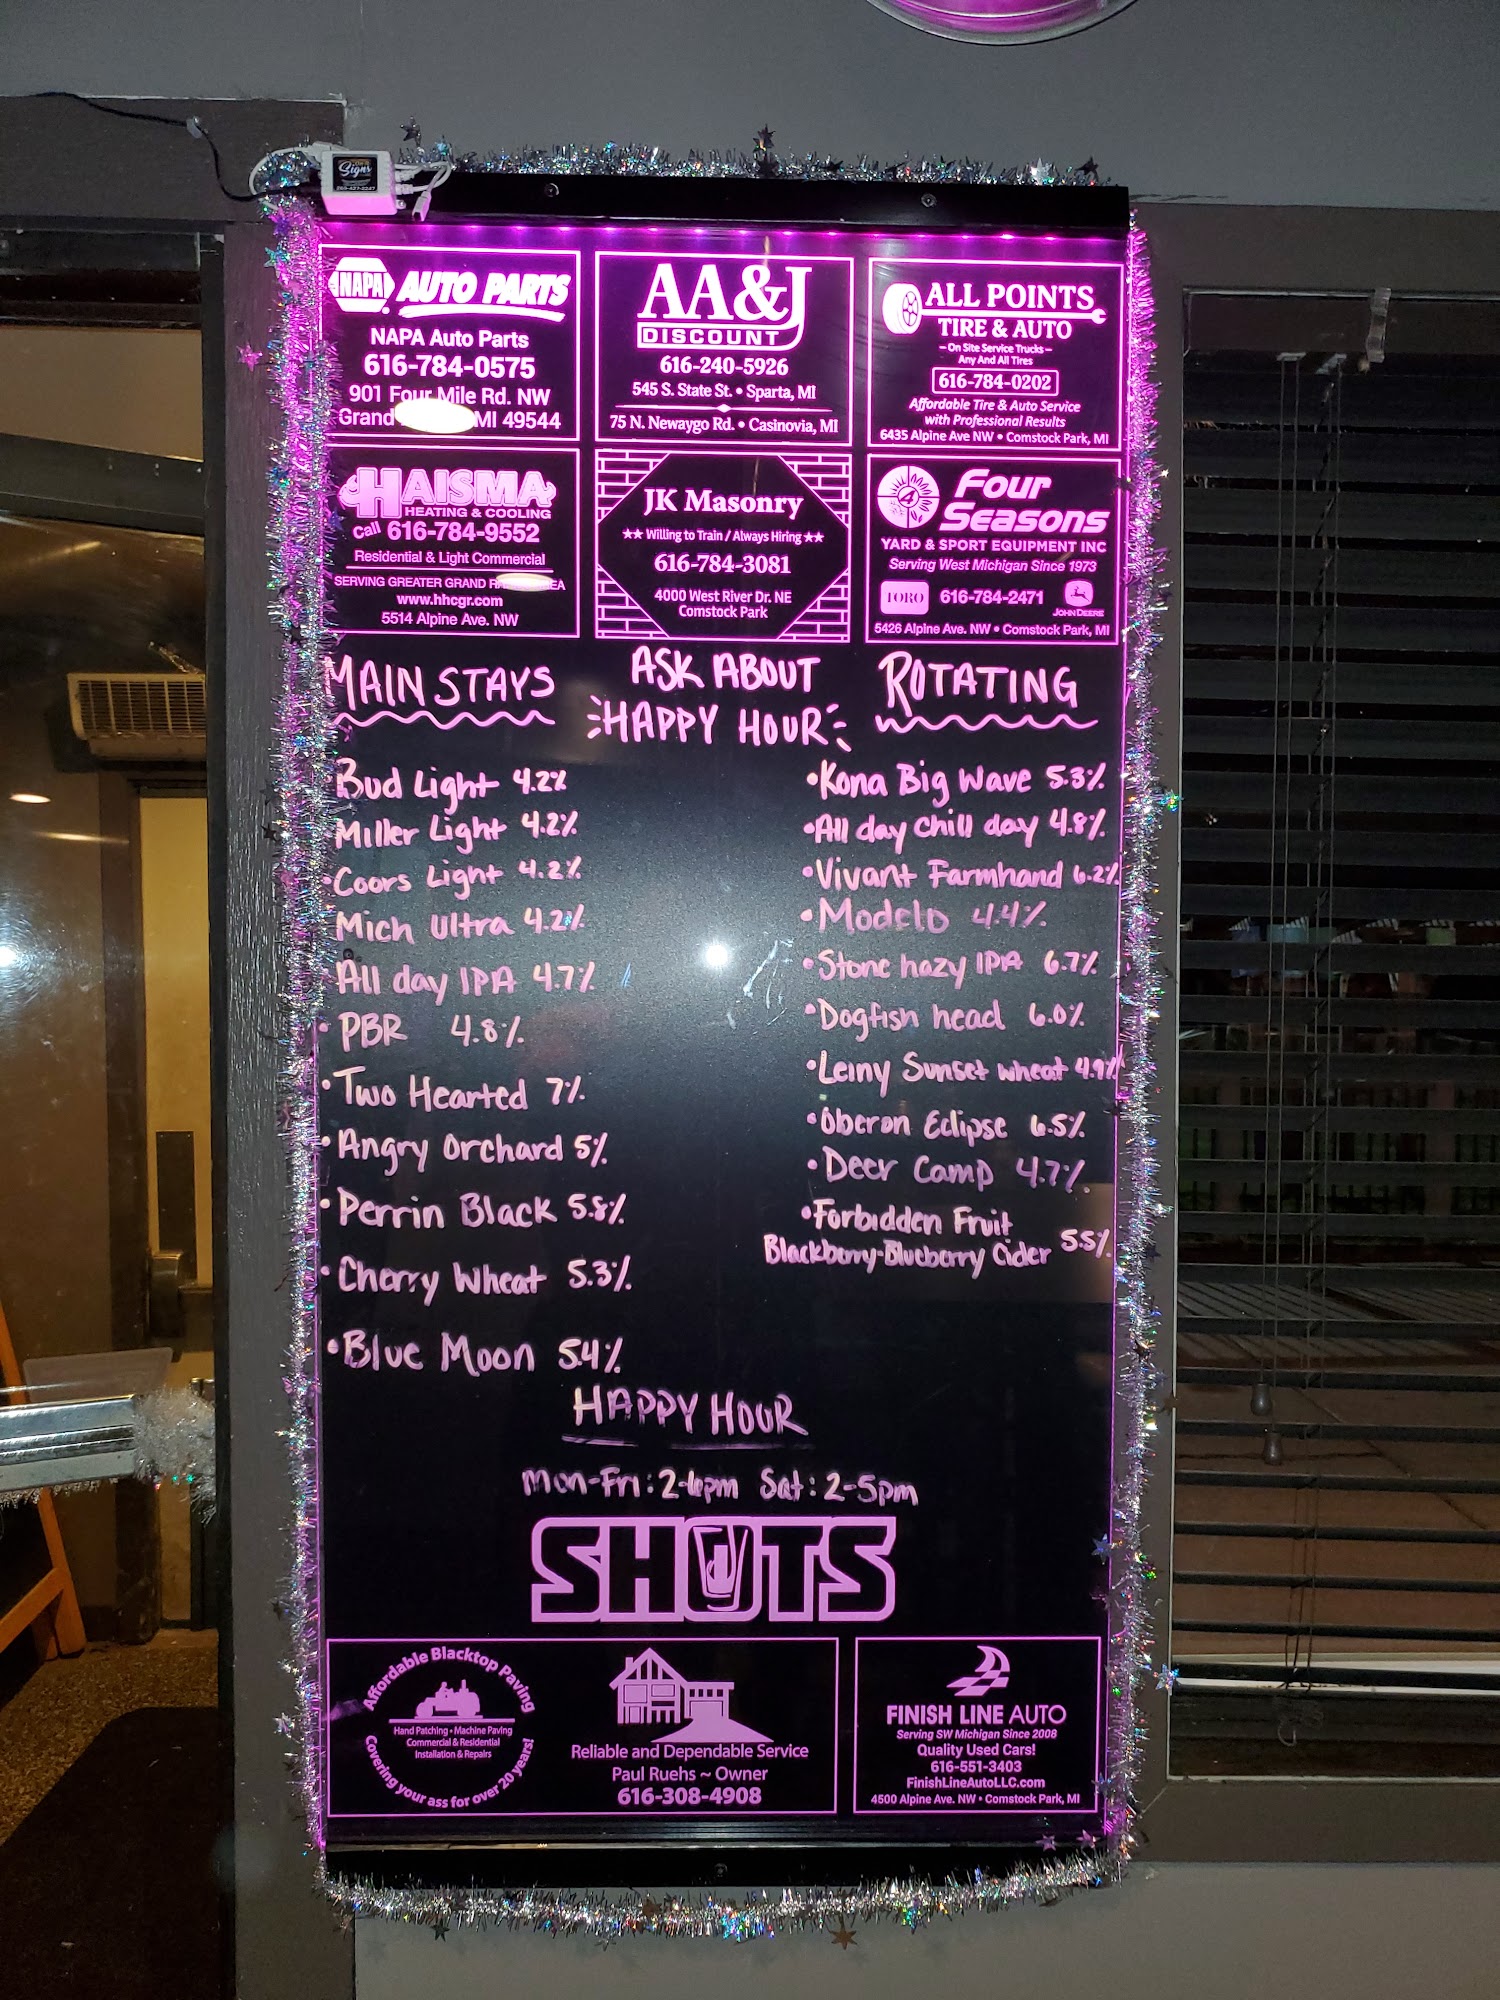 Signs
NAPA AUTO PARTS
NAPA Auto Parts
616-784-0575
901 Four Mile Rd. NW
Grand MI 49544
AA&J
DISCOUNT
616-240-5926
545 S. State St. • Sparta, MI
75 N. Newaygo Rd. • Casinovia, MI
ALL POINTS
TIRE & AUTO
- On Site Service Trucks -
Any And All Tires
616-784-0202
Affordable Tire & Auto Service
with Professional Results
6435 Alpine Ave NW • Comstock Park, MI
HAISMA
HEATING & COOLING
call 616-784-9552
Residential & Light Commercial
SERVING GREATER GRAND
www.hhcgr.com
5514 Alpine Ave. NW
JK Masonry
★★ Willing to Train / Always Hiring ★★
616-784-3081
4000 West River Dr. NE
Comstock Park
Four
Seasons
YARD & SPORT EQUIPMENT INC
Serving West Michigan Since 1973
TORO 616-784-2471 JOHN DEERE
5426 Alpine Ave. NW • Comstock Park, MI
MAIN STAYS
• Bud Light 4.2%
Miller Light 4.2%
• Coors Light 4.2%
Mich Ultra 4.2%
All day IPA 4.7%
• PBR 4.8%
• Two Hearted 7%
• Angry Orchard 5%
• Perrin Black 5.8%
• Cherry Wheat 5.3%
• Blue Moon 5.4%
ASK ABOUT
HAPPY HOUR
ROTATING
• Kona Big Wave 5.3%
• All day chill day 4.8%
• Vivant Farmhand 6.2%
• Modelo 4.4%
• Stone hazy IPA 6.7%
• Dogfish head 6.0%
• Leiny Sunset wheat 4.9%
• Oberon Eclipse 6.5%
• Deer Camp 4.7%
• Forbidden Fruit
Blackberry-Blueberry Cider 5.5%
HAPPY HOUR
Mon-Fri: 2-6pm Sat: 2-5pm
SHOTS
Affordable Blacktop Paving
Hand Patching • Machine Paving
Commercial & Residential
Installation & Repairs
Covering your ass for over 20 years!
Reliable and Dependable Service
Paul Ruehs ~ Owner
616-308-4908
FINISH LINE AUTO
Serving SW Michigan Since 2008
Quality Used Cars!
616-551-3403
FinishLineAutoLLC.com
4500 Alpine Ave. NW • Comstock Park, MI